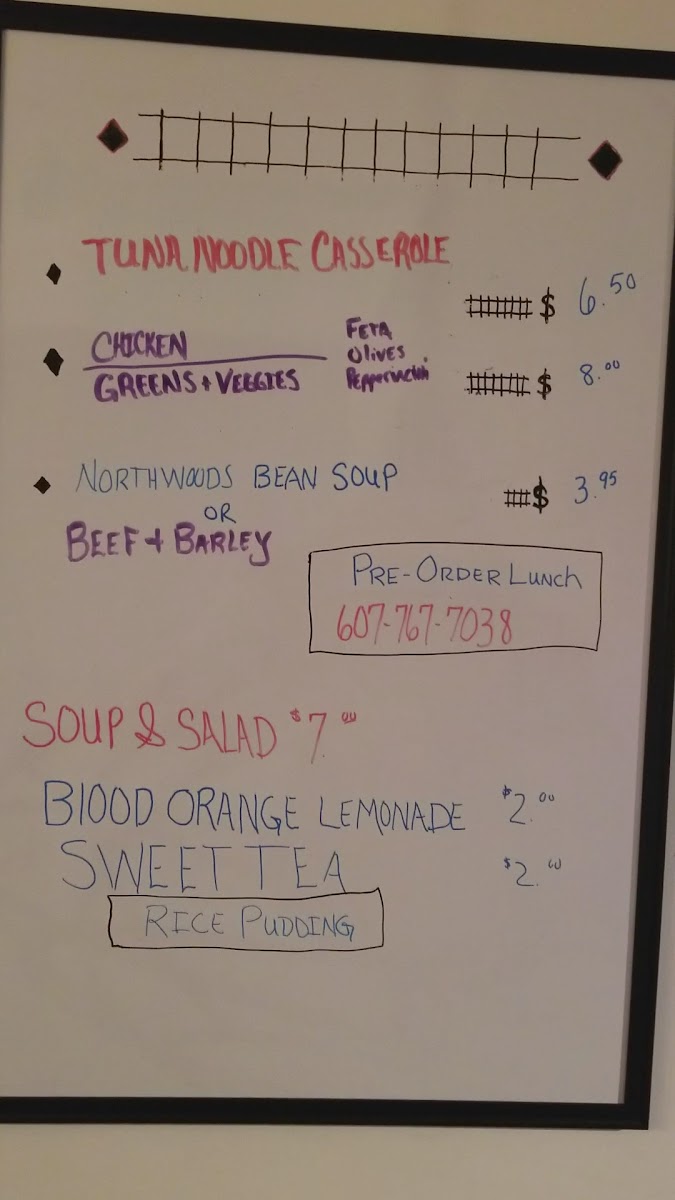 TUNA NOODLE CASSEROLE
$ 6.50
CHICKEN
GREENS + VEGGIES
FETA
OLIVES
$ 8.00
NORTHWOODS BEAN SOUP
$ 3.95
OR
BEEF + BARLEY
PRE-ORDER LUNCH
607-767-7038
SOUP & SALAD $7.00
BLOOD ORANGE LEMONADE $2.00
SWEET TEA $2.00
RICE PUDDING